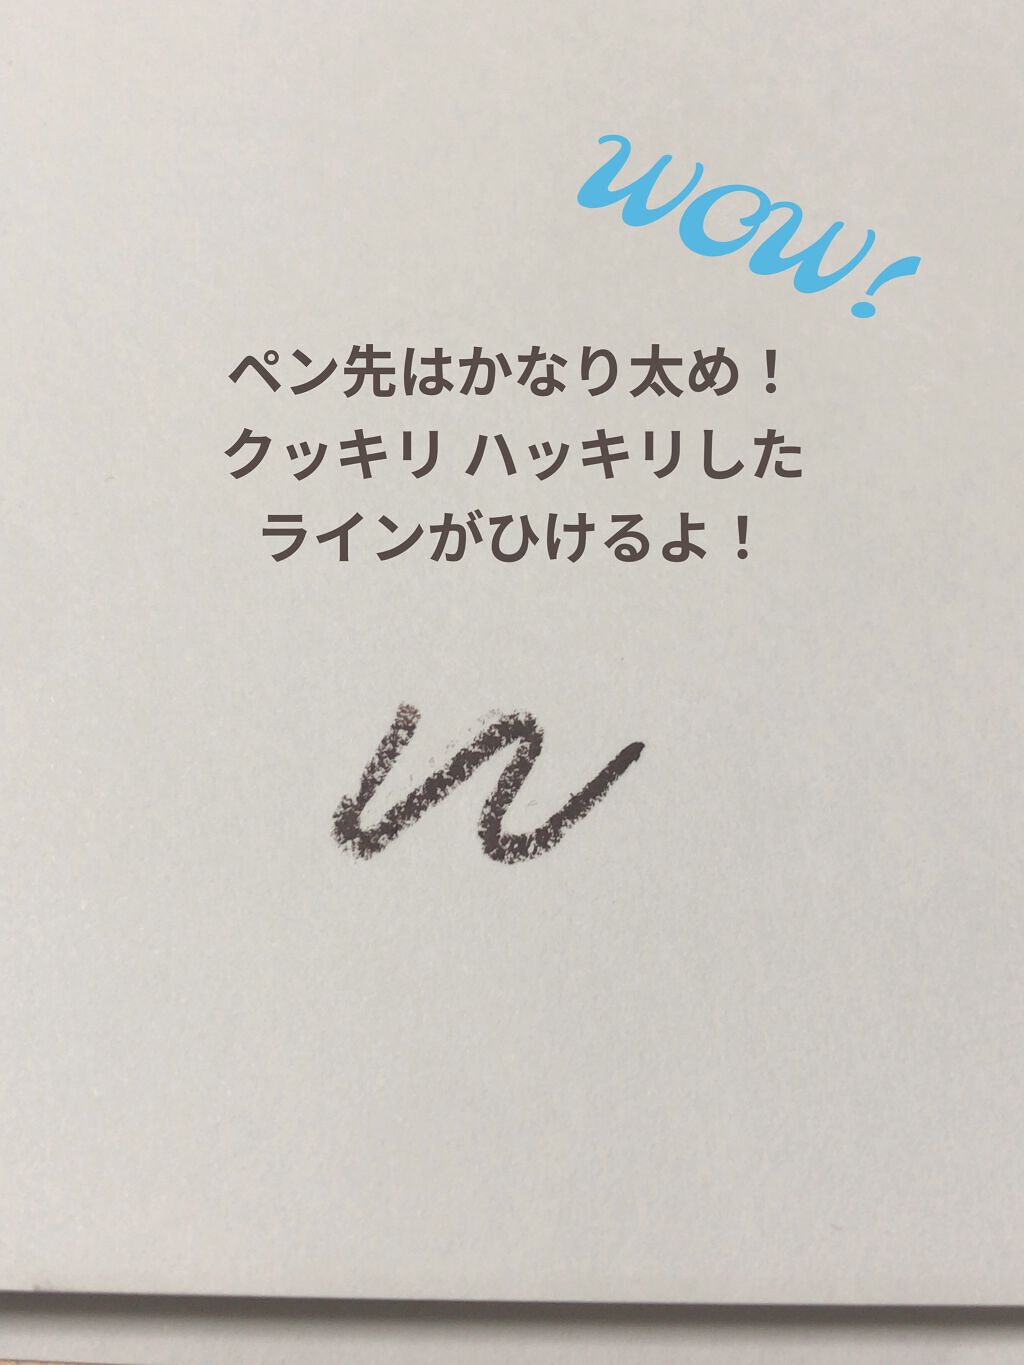 wow!
ペン先はかなり太め！
クッキリ ハッキリした
ラインがひけるよ！